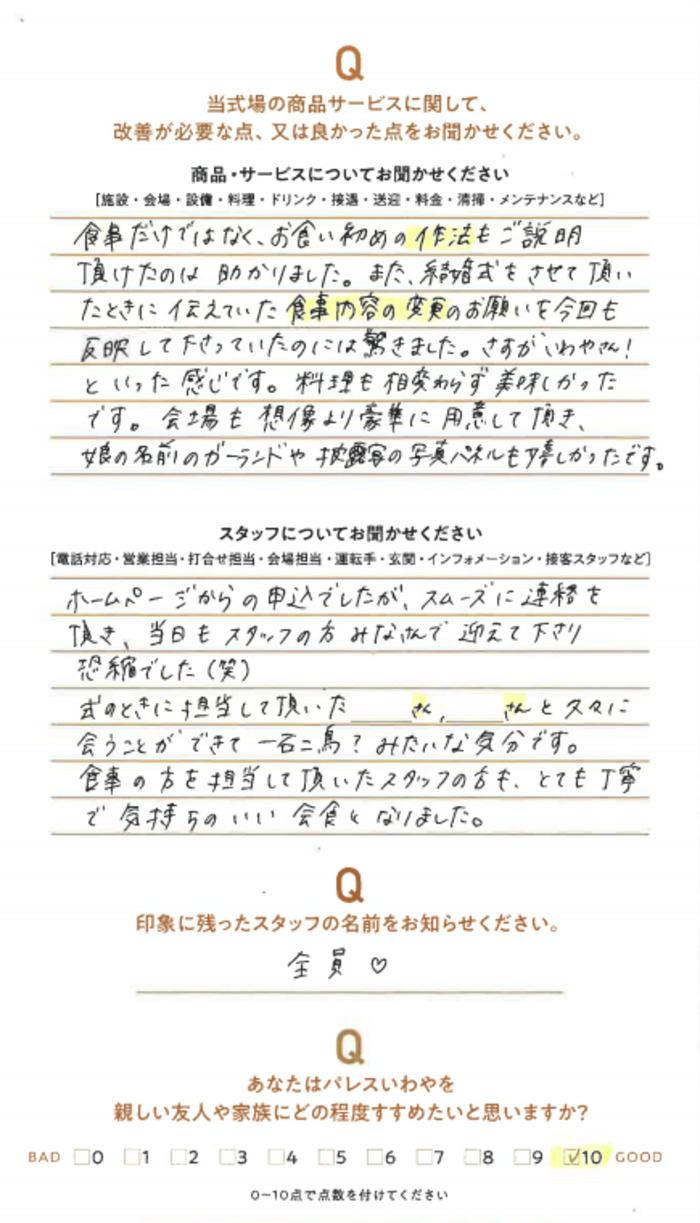 Q
当式場の商品サービスに関して、
改善が必要な点、又は良かった点をお聞かせください。
商品・サービスについてお聞かせください
[施設・会場・設備・料理・ドリンク・接遇・送迎・料金・清掃・メンテナンスなど]
食事だけではなく、お食い初めの作法もご説明
頂けたのは助かりました。また、結婚式をさせて頂い
たときに伝えていた食事内容の変更のお願いを今回も
反映して下さっていたのには驚きました。さすがいわやさん!
といった感じです。料理も相変わらず美味しかった
です。会場も想像より豪華に用意して頂き、
娘の名前のガーランドや披露宴の写真パネルも嬉しかったです。
スタッフについてお聞かせください
[電話対応・営業担当・打合せ担当・会場担当・運転手・玄関・インフォメーション・接客スタッフなど]
ホームページからの申込でしたが、スムーズに連絡を
頂き、当日もスタッフの方みなさんで迎えて下さり
恐縮でした(笑)
式のときに担当して頂いた____さん,____さんと久々に
会うことができて一石二鳥?みたいな気分です。
食事の方を担当して頂いたスタッフの方も、とても丁寧
で気持ちのいい会食となりました。
Q
印象に残ったスタッフの名前をお知らせください。
全員♡
Q
あなたはパレスいわやを
親しい友人や家族にどの程度すすめたいと思いますか?
BAD □0 □1 □2 □3 □4 □5 □6 □7 □8 □9 ☑10 GOOD
0~10点で点数を付けてください